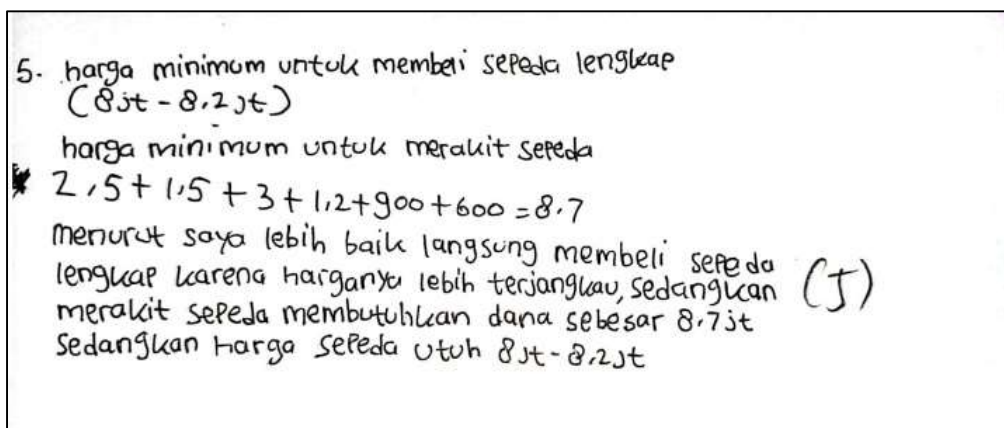 5. harga minimum untuk membeli sepeda lengkap
(8jt - 8,2jt)
harga minimum untuk merakit sepeda
2,5 + 1,5 + 3 + 1,2 + 900 + 600 = 8.7
menurut saya lebih baik langsung membeli sepeda
lengkap karena harganya lebih terjangkau, sedangkan (J)
merakit sepeda membutuhkan dana sebesar 8.7jt
sedangkan harga sepeda utuh 8jt - 8,2jt